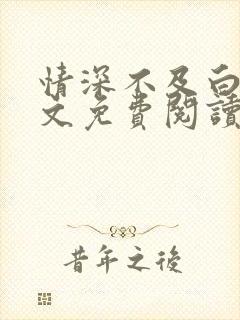 情深不及白
文免費閱讀
昔年之後